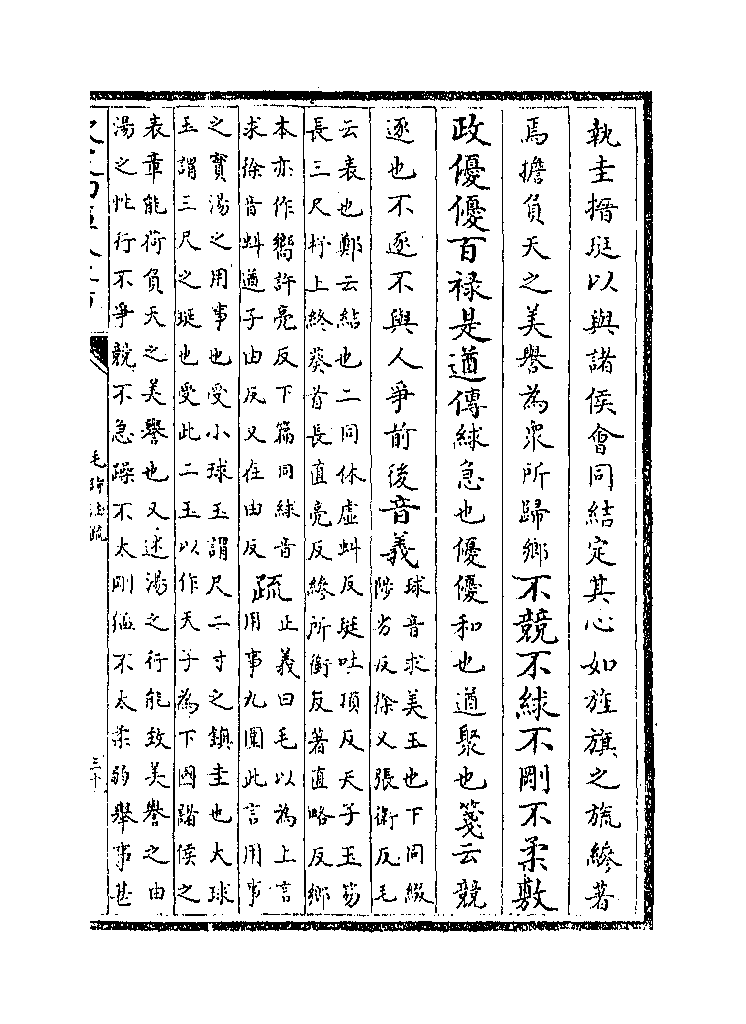 執圭搢珽以與諸侯會同結定其心如旌旗之旒縿著
焉擔負天之美譽為衆所歸鄉不競不絿不剛不柔敷
政優優百祿是遒傳絿急也優優和也遒聚也箋云競
逐也不逐不與人爭前後音義
球音求美玉也下同綴
陟劣反徐又張衛反毛
云表也鄭云結也二同休虛虯反珽吐頂反天子玉笏
長三尺杼上終葵首長直亮反縿所銜反著直略反鄉
本亦作嚮許亮反下篇同絿音
求徐音虯遒子由反又在由反
疏
正義曰毛以為上言
用事九圍此言用事
之實湯之用事也受小球玉謂尺二寸之鎮圭也大球
玉謂三尺之珽也受此二玉以作天子為下國諸侯之
表章能荷負天之美譽也又述湯之行能致美譽之由
湯之性行不爭競不急躁不太剛猛不太柔弱舉事甚
毛詩注疏
三十